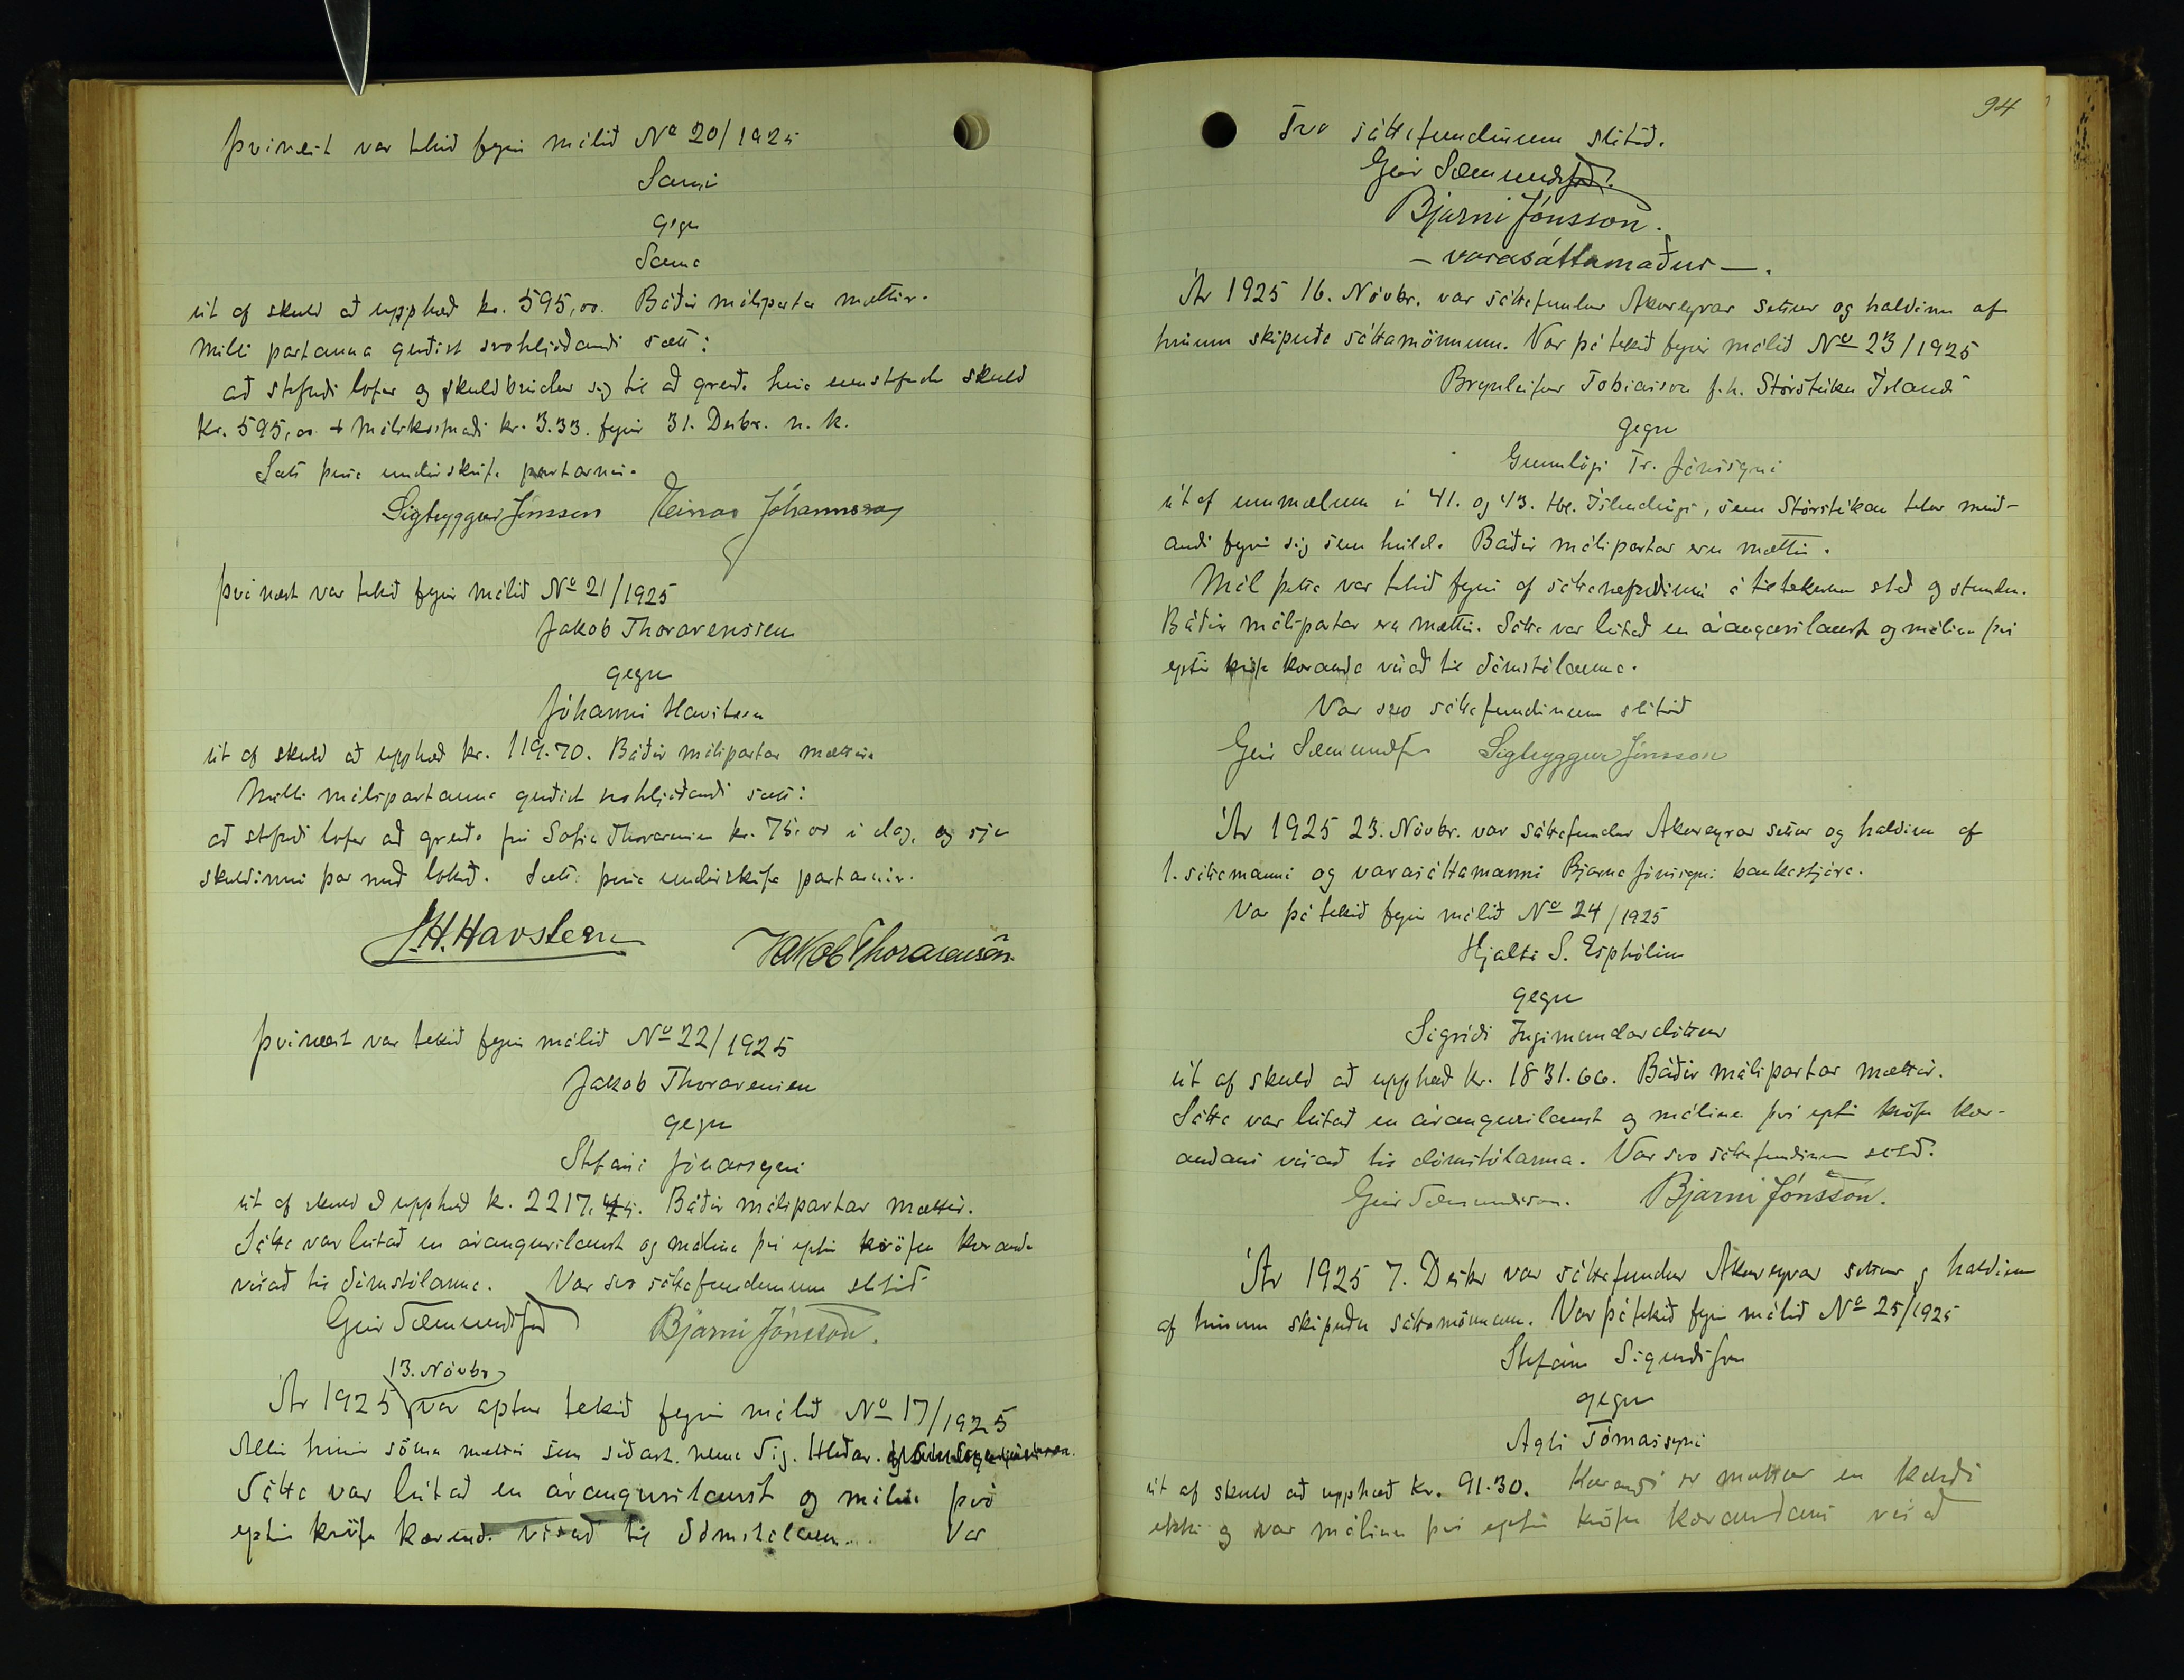 Þvínæst var tekið fyrir málið No 20/1925
Sami
gegn
Sama
út af skuld að upphæð kr. 595,00. Báðir málspartar mættir.
Milli partanna gerðist svohljóðandi sætt:
að stefndi lofar og skuldbindur sig til að greiða hina umstefndu skuld
Kr. 595,00 + málskostnaði kr. 3.33. fyrir 31. Desbr. n. k.
Sætt þessa undirskrifa partarnir.
Sigtryggur Jónsson Steinar Jóhannsson
Því næst var tekið fyrir málið No 21/1925
Jakob Thorarenssen
gegn
Jóhanni Havsteen
út af skuld að upphæð kr. 119.70. Báðir málspartar mættir.
Milli málspartanna gerðist svohljóðandi sætt:
að stefndi lofar að greiða frú Sofia Thorarensen kr. 75,00 í dag, og sje
skuldinni þar með lokið. Sætt þessa undirskrifa partarnir.
J.H. Havsteen Jakob Thorarensen.
Þvínæst var tekið fyrir málið No 22/1925
Jakob Thorarensen
gegn
Stefáni Jónassyni
út af skuld að upphæð k. 2217, Báðir málspartar mættir.
Sátta var leitað en árangurslaust og málinu því eptir kröfu kæranda
vísað til dómstólanna. Var svo sáttafundinum slitið
Geir Sæmundsson Bjarni Jónsson.
13. Nóvbr
Ár 1925 var aptur tekið fyrir málið No 17/1925
Allir hinir sömu mættir sem síðast. nema Sig. Hlíðar.
Sátta var leitað en árangurslaust og málinu því
eptir kröfu kæranda vísað til dómstólanna. Var
94
svo sáttafundinum slitið.
Geir Sæmundsson.
Bjarni Jónsson.
- varasáttamaður -.
Ár 1925 16. Nóvbr. var sáttafundur Akureyrar settur og haldinn af
hinum skipuðu sáttamönnum. Var þá tekið fyrir málið No 23/1925
Brynleifur Tobiasson f.h. Stórstúku Íslands
gegn
Gunnlögi Tr. Jónssyni
út af ummælum í 41. og 43. tbl. Íslendings, sem Stórstúkan telur meið-
andi fyrir sig sem heild. Báðir málspartar eru mættir.
Mál þetta var tekið fyrir af sáttanefndinni á tilteknum stað og stundu.
Báðir málspartar eru mættir. Sátta var leitað en árangurslaust og málinu því
eptir kröfu kæranda vísað til dómstólanna.
Var svo sáttafundinum slitið
Geir Sæmundsson Sigtryggur Jónsson
Ár 1925 23. Nóvbr. var sáttafundur Akureyrar settur og haldinn af
1. sáttamanni og varasáttamanni Bjarna Jónssyni bankastjóra.
Var þá tekið fyrir málið No 24/1925
Hjalti S. Espholin
gegn
Sigríði Ingimundardóttur
út af skuld að upphæð kr. 1831.66. Báðir málspartar mættir.
Sátta var leitað en árangurslaust og málinu því eptir kröfu kær-
andans vísað til dómstólanna. Var svo sáttafundinum slitið.
Geir Sæmundsson. Bjarni Jónsson.
Ár 1925 7. Desbr var sáttafundur Akureyrar settur og haldinn
af hinum skipuðu sáttamönnum. Var þá tekið fyrir málið No 25/1925
Stefán Sigurðsson
gegn
Agli Tómassyni
út af skuld að upphæð kr. 91.30. Kærandi er mættur en kærði
ekki og var málinu því eptir kröfu kærandans vísað